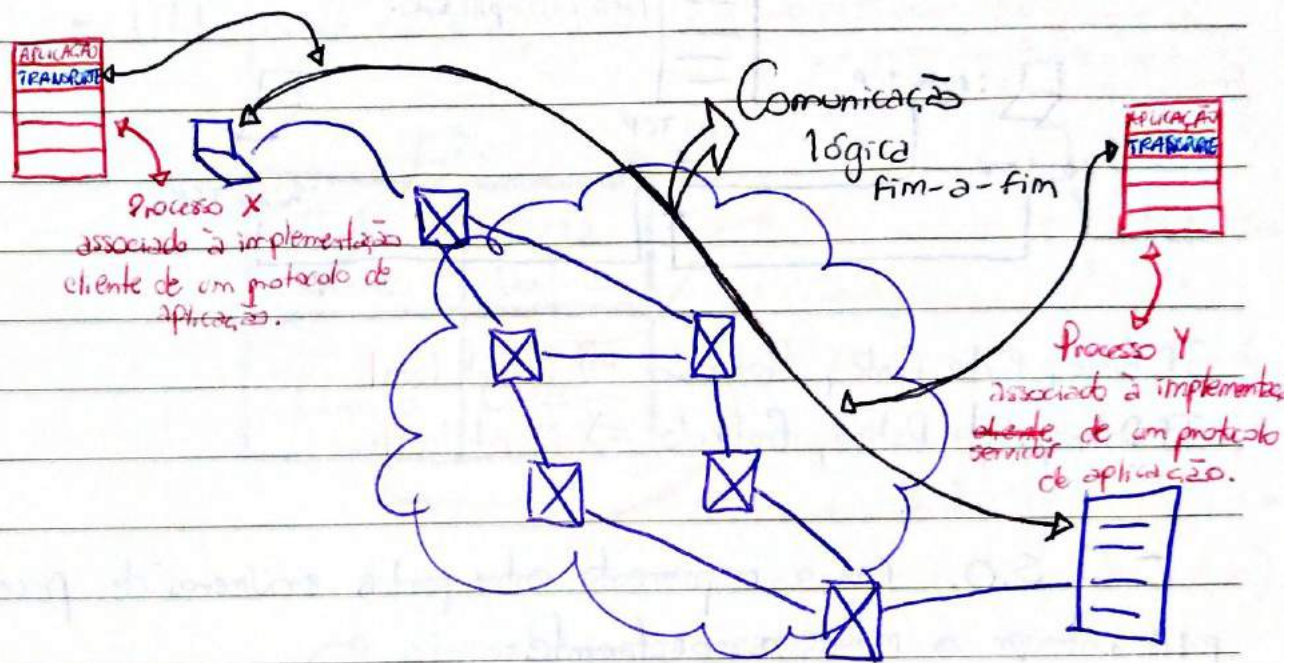 APLICAÇÃO
TRANSPORTE
Processo X
associado à implementação
cliente de um protocolo de
aplicação.
Comunicação
lógica
fim-a-fim
APLICAÇÃO
TRANSPORTE
Processo Y
associado à implementaç
cliente de um protocolo
servidor
de aplicação.